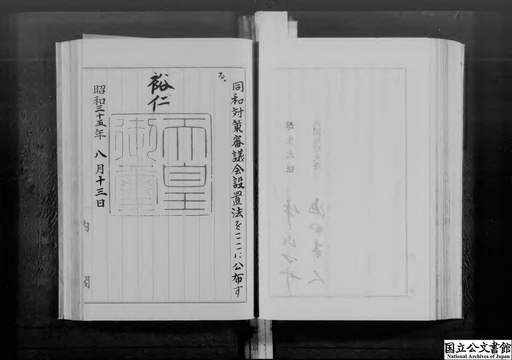 同和対策審議会設置法をここに公布す
る。
裕仁
天皇
御璽
昭和三十五年 八月十三日
内閣
国立公文書館
National Archives of Japan